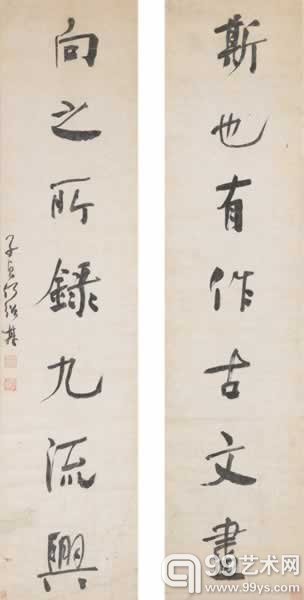 斯也有作古文書
向之所錄九流興
子貞何紹基
99艺术网
www.99ys.com